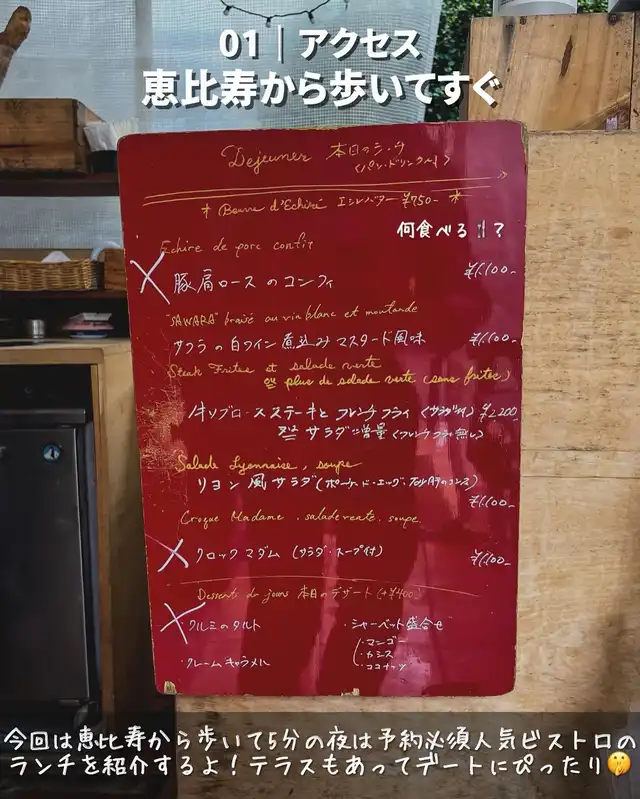 01｜アクセス
恵比寿から歩いてすぐ
Dejeuner 本日のランチ
(パン・ドリンク付)
* Beurre d'Echiré エシレバター ¥750- *
何食べる🍴？
Echire de porc confit
豚肩ロースのコンフィ ¥1,600-
"SAWARA" braisé au vin blanc et moutarde
サワラの白ワイン煮込みマスタード風味 ¥1,600-
Steak Frites et salade verte
ou plus de salade verte (sans frites)
牛リブロースステーキとフレンチフライ (サラダ付) ¥2,200
サラダ増量 (フレンチフライ無し)
Salade Lyonnaise, soupe
リヨン風サラダ(ポーチ・ド・エッグ、
¥1,600-
Croque Madame, salade verte, soupe
クロックマダム (サラダ・スープ付) ¥1,600-
Desserts du jours 本日のデザート (+¥400)
・クルミのタルト ・シャーベット盛合せ
・マンゴー
・カシス
・クレームキャラメル ・ココナッツ
今回は恵比寿から歩いて5分の夜は予約必須人気ビストロの
ランチを紹介するよ！テラスもあってデートにぴったり🤫